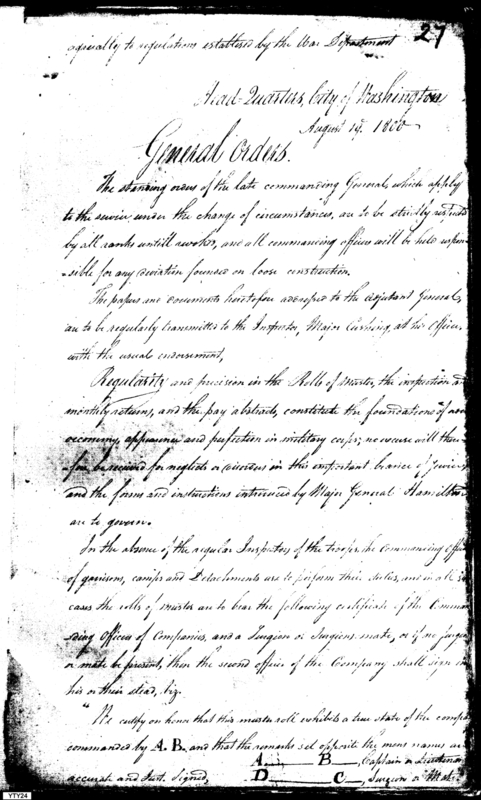 27
agreeably to regulations establised by the War Department
Head-Quarters, City of Washington
August 19, 1800
General Orders.
The standing orders of the late commanding Generals, which apply
to the service under the change of circumstances, are to be strictly respected
by all ranks untill revoked, and all commanding officers will be held respon-
-sible for any deviation founded on loose construction.
The papers and documents heretofore addressed to the adjutant General,
are to be regularly transmitted to the Inspector, Major Cushing, at his Office,
with the usual endorsement,
Regularity and precision in the Rolls of Muster, the inspection and
monthly returns, and the pay abstracts, constitute the foundations of
oeconomy, appearance and perfection in military corps; no excuse will there-
-fore be received for neglects or disorders in this important branch of Service
and the forms and instructions introduced by Major General Hamilton
are to govern.
In the absence of the regular Inspectors of the troops, the commanding Officers
of garrisons, camps and Detachments are to perform their duties, and in all
cases the rolls of muster are to bear the following certificate of the Comman-
-ding Officers of Companies, and a Surgeon or Surgeons mate, or if no Surgeon
or mate be present, then the second officer of the Company shall sign in
his or their stead, viz.
"We certify on honor that this muster roll exhibits a true state of the company
commanded by A. B. and that the remarks set opposite the mens names are
accurate and Just. Signed, A___ B___, Captain or Lieutenant
D___ C___, Surgeon or Mate
YTY24